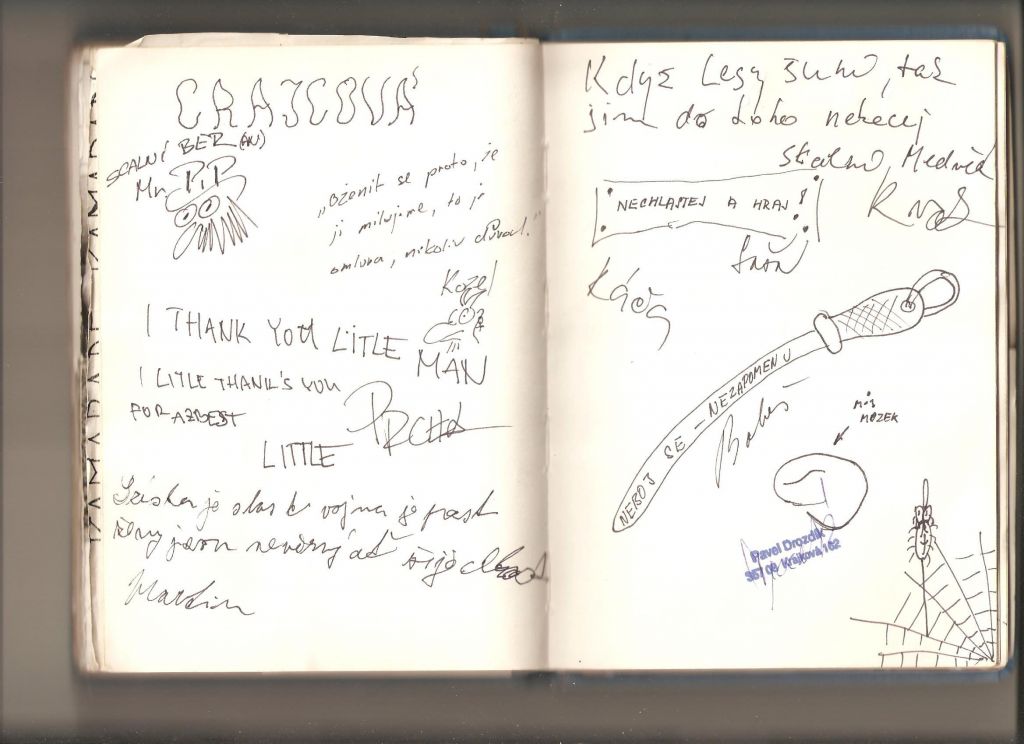 CRAJCOVA
SCALNÍ BER(AN)
Mr. P.i.P
"Oženit se proto, že
ji milujeme, to je
omluva, nikoliv důvod."
Kozel
I THANK YOU LITLE
MAN
I LITLE THANK'S YOU
FOR AZBEST
LITTLE
Láska je slast vojna je past
ženy jsou nevěrný ať žije
Martin
Když lesy šumí, tak
jim do toho nekecej
skalní Medvěd
NECHLASTEJ A HRAJ!
Káča
NEBOJ SE - NEZAPOMENU
Bobeš
MŮJ
MOZEK
Pavel Drozdík
357 08 Krajková 162